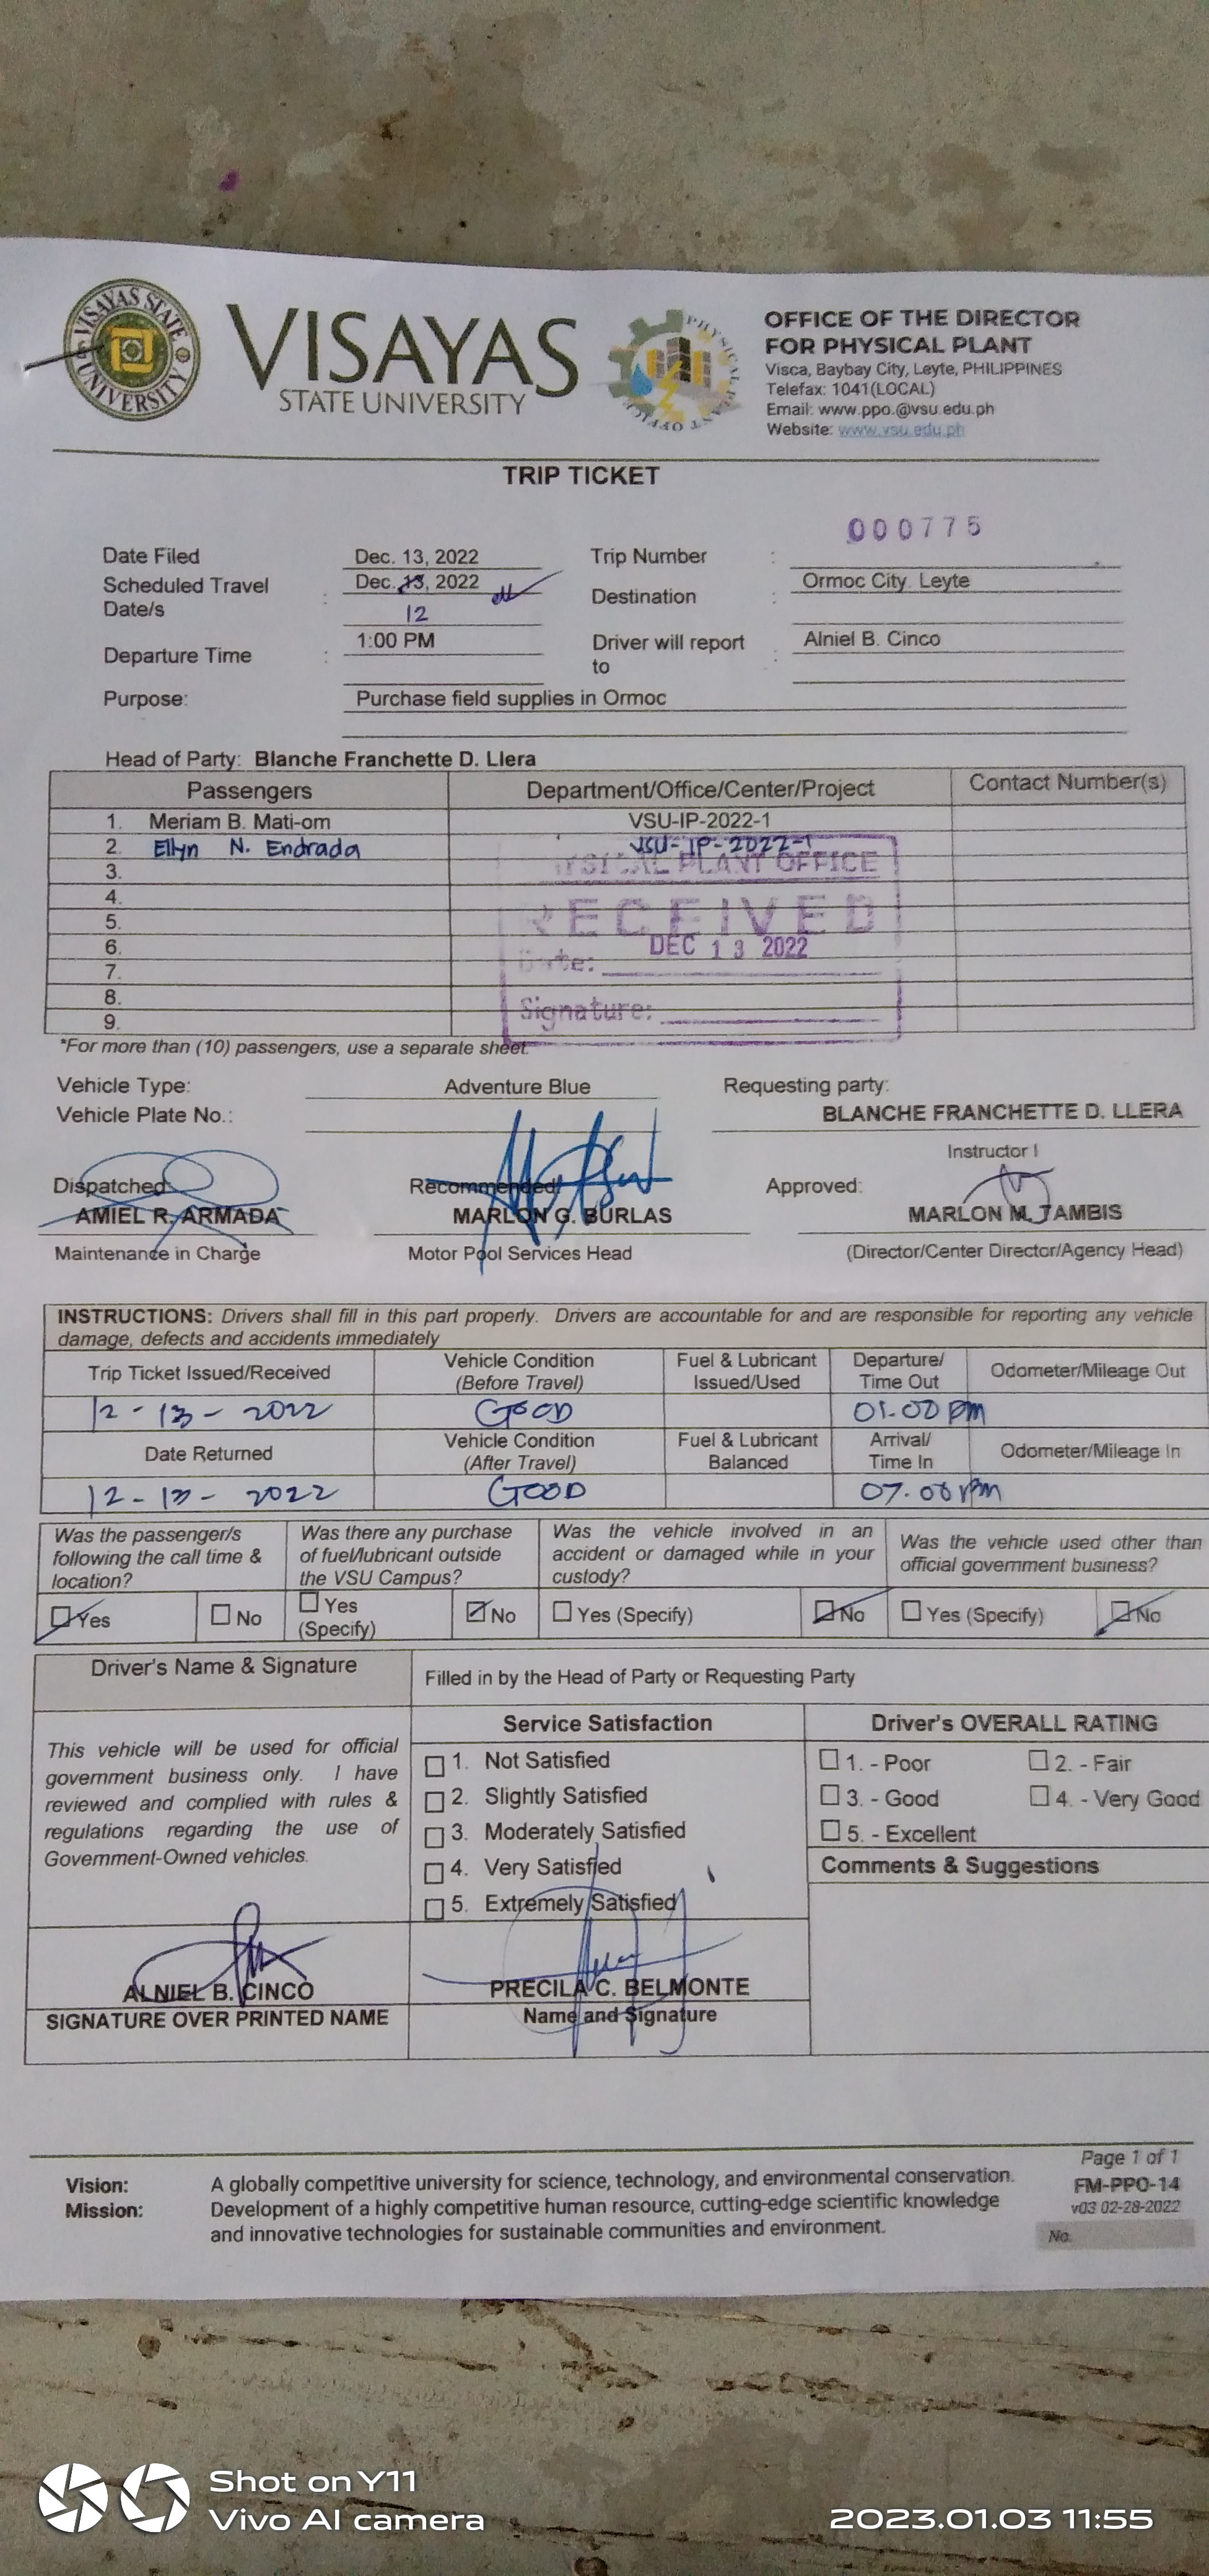 VISAYAS STATE UNIVERSITY
VISAYAS
STATE UNIVERSITY
PHYSICAL PLANT OFFICE
OFFICE OF THE DIRECTOR
FOR PHYSICAL PLANT
Visca, Baybay City, Leyte, PHILIPPINES
Telefax: 1041(LOCAL)
Email: www.ppo.@vsu.edu.ph
Website: www.vsu.edu.ph
TRIP TICKET
000775
Date Filed Dec. 13, 2022 Trip Number :
Scheduled Travel Date/s : Dec. 13, 2022 12 Destination : Ormoc City. Leyte
Departure Time : 1:00 PM Driver will report to : Alniel B. Cinco
Purpose: Purchase field supplies in Ormoc
Head of Party: Blanche Franchette D. Llera
Passengers Department/Office/Center/Project Contact Number(s)
1. Meriam B. Mati-om VSU-IP-2022-1
2. Ellyn N. Endrada VSU-IP-2022-1
3.
4.
5.
6.
7.
8.
9.
PLANT OFFICE
RECEIVED
Date: DEC 13 2022
Signature:
*For more than (10) passengers, use a separate sheet.
Vehicle Type: Adventure Blue Requesting party:
Vehicle Plate No.: BLANCHE FRANCHETTE D. LLERA
Instructor I
Dispatched: Recommended: Approved:
AMIEL R. ARMADA MARLON G. BURLAS MARLON M. TAMBIS
Maintenance in Charge Motor Pool Services Head (Director/Center Director/Agency Head)
INSTRUCTIONS: Drivers shall fill in this part properly. Drivers are accountable for and are responsible for reporting any vehicle
damage, defects and accidents immediately
Trip Ticket Issued/Received Vehicle Condition (Before Travel) Fuel & Lubricant Issued/Used Departure/ Time Out Odometer/Mileage Out
12-13-2022 GOOD 01.00 PM
Date Returned Vehicle Condition (After Travel) Fuel & Lubricant Balanced Arrival/ Time In Odometer/Mileage In
12-13-2022 GOOD 07.00 PM
Was the passenger/s following the call time & location? Was there any purchase of fuel/lubricant outside the VSU Campus? Was the vehicle involved in an accident or damaged while in your custody? Was the vehicle used other than official government business?
Yes No Yes (Specify) No Yes (Specify) No Yes (Specify) No
Driver's Name & Signature Filled in by the Head of Party or Requesting Party
Service Satisfaction Driver's OVERALL RATING
This vehicle will be used for official
government business only. I have
reviewed and complied with rules &
regulations regarding the use of
Government-Owned vehicles.
1. Not Satisfied
2. Slightly Satisfied
3. Moderately Satisfied
4. Very Satisfied
5. Extremely Satisfied
1. - Poor 2. - Fair
3. - Good 4. - Very Good
5. - Excellent
Comments & Suggestions
ALNIEL B. CINCO PRECILA C. BELMONTE
SIGNATURE OVER PRINTED NAME Name and Signature
Page 1 of 1
FM-PPO-14
v03 02-28-2022
No.
Vision: A globally competitive university for science, technology, and environmental conservation.
Mission: Development of a highly competitive human resource, cutting-edge scientific knowledge
and innovative technologies for sustainable communities and environment.
Shot on Y11
Vivo AI camera
2023.01.03 11:55